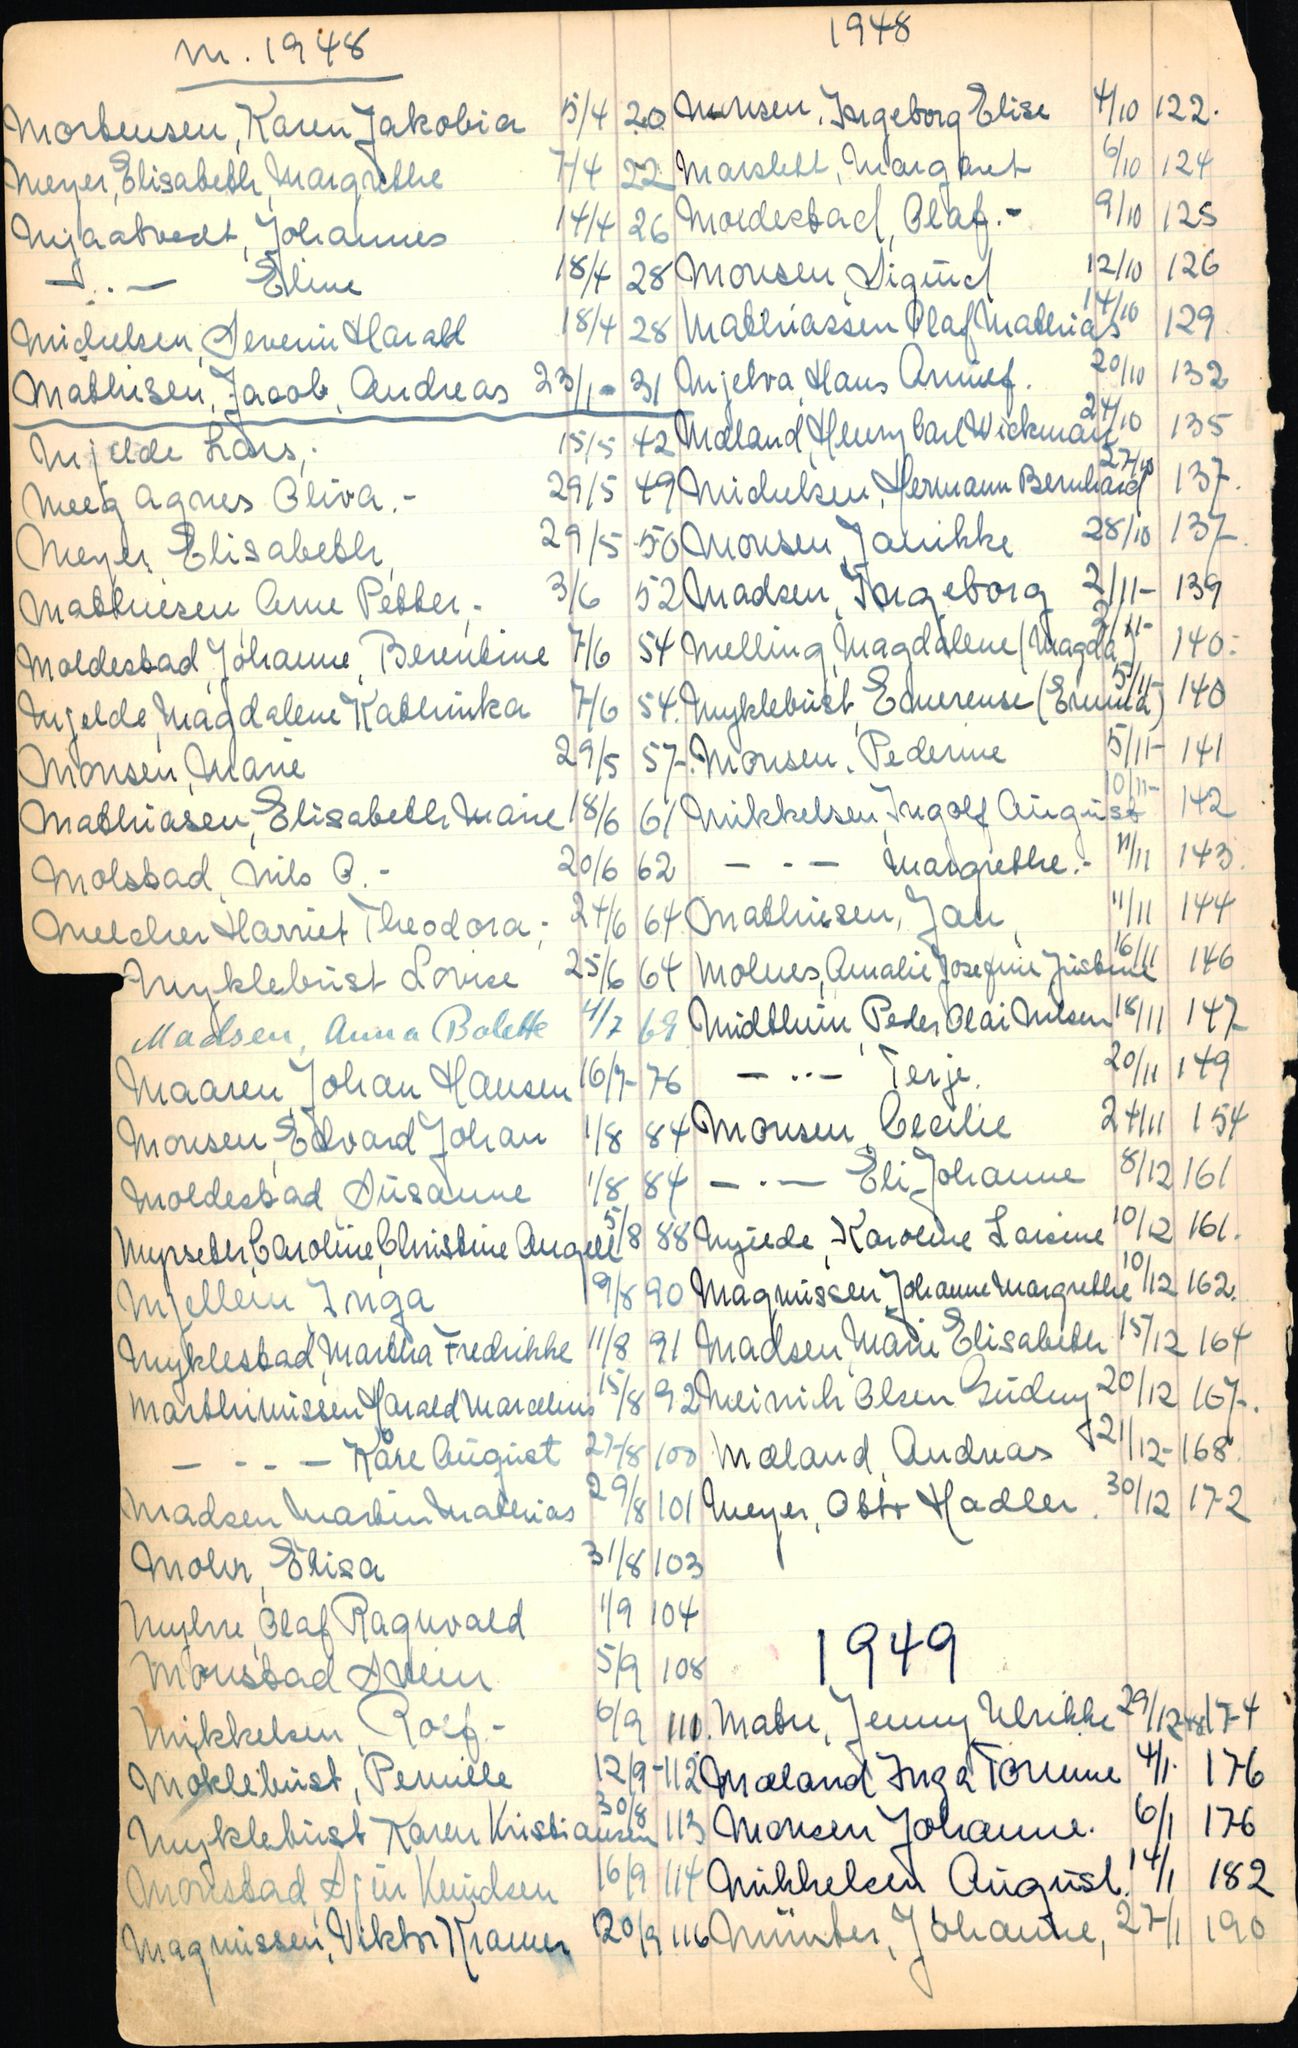 M. 1948
Mortensen, Karen Jakobia 5/4 20
Meyer, Elisabeth Margrethe 7/4 22
Mjaatvedt, Johannes 14/4 26
— .. — Eline 18/4 28
Michelsen, Severin Harald 18/4 28
Mathisen, Jacob, Andreas 23/1 - 31
Mjelde Lars, 15/5 42
Meeg Agnes Oliva. - 29/5 49
Meyer, Elisabeth, 29/5 50
Mathiesen Arne Petter, - 3/6 52
Moldestad, Johanne, Berentine 7/6 54
Mjelde, Magdalene Kathinka 7/6 54.
Monsen, Marie 29/5 57.
Mathiasen, Elisabeth Marie 18/6 61
Molstad, Nils O. - 20/6 62
Melcher Harriet Theodora; 24/6 64
Myklebust Lovise 25/6 64
Madsen, Anna Bolette 4/7 69
Maaren, Johan Hansen 16/7- 76
Monsen, Edvard Johan 1/8 84
Moldestad, Susanne 1/8 84
Myrseter, Caroline, Christine Angell 5/8 88
Mjellem, Inga 9/8 90
Myklestad, Martha Fredrikke 11/8 91
Marthinussen Harald Marcelius 15/8 92
— - - — Kåre August 27/8 100
Madsen Martin Mathias 29/8 101
Mohn, Elisa 31/8 103
Myhre, Olaf Ragnvald 1/9 104
Monstad Svein 5/9 108
Mikkelsen, Rolf - 6/9 110.
Moklebust, Pernille 12/9 - 112
Myklebust Karen Kristiansen 30/8 113
Monstad, Sjur Knudsen 16/9 114
Magnussen, Viktor Kramer 20/9 116
1948
Monsen, Ingeborg Elise 4/10 122.
Marstett, Margaret 6/10 124
Moldestad, Olaf. - 9/10 125
Monsen, Sigurd 12/10 126
Mathiassen Olaf Mathias 14/10 129
Mjelva, Hans Annief. 20/10 132
Mæland, Henry Carl Wickman 24/10 135
Michelsen, Hermann Bernhard 27/10 137.
Monsen, Janikke 28/10 137.
Madsen, Ingeborg 2/11- 139
Melling, Magdalene (Magda) 2/11- 140.
Myklebust, Emerense (Emma) 5/11- 140
Monsen, Pederine 5/11- 141
Mikkelsen, Ingolf August 10/11- 142
— - — Margrethe. - 11/11 143.
Mathiesen, Jan, 11/11 144
Molnes, Amalie Josefine Justine 16/11 146
Midttun, Peder Olai Nilsen 18/11 147
— .. — Terje. 20/11 149
Monsen, Cecilie 24/11 154
— . — Eli Johanne 8/12 161
Mjelde, Karoline Larsine 10/12 161.
Magnussen Johanne Margrethe 10/12 162.
Madsen, Marie Elisabeth 15/12 164
Meinich Olsen Gudny 20/12 167.
Mæland, Andreas 21/12- 168.
Meyer, Otto Hadler. 30/12 172
1949
Matre, Jenny Ulrikke 29/12 48 174
Mæland Inga Tomine 4/1. 176
Monsen Johanne. 6/1 176
Mikkelsen August. 14/1 182
Münter, Johanne, 27/1 190